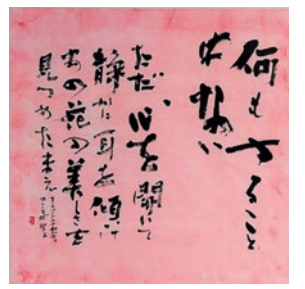 何もやること
はない
ただ心を開いて
静かに耳を傾け
あの花の美しさを
見つめたまえ